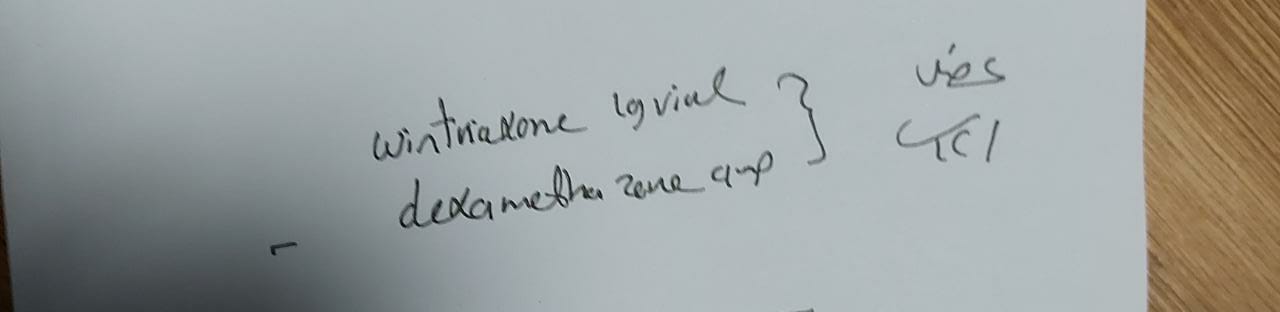 wintriaxone 1g vial
dexametha zone amp